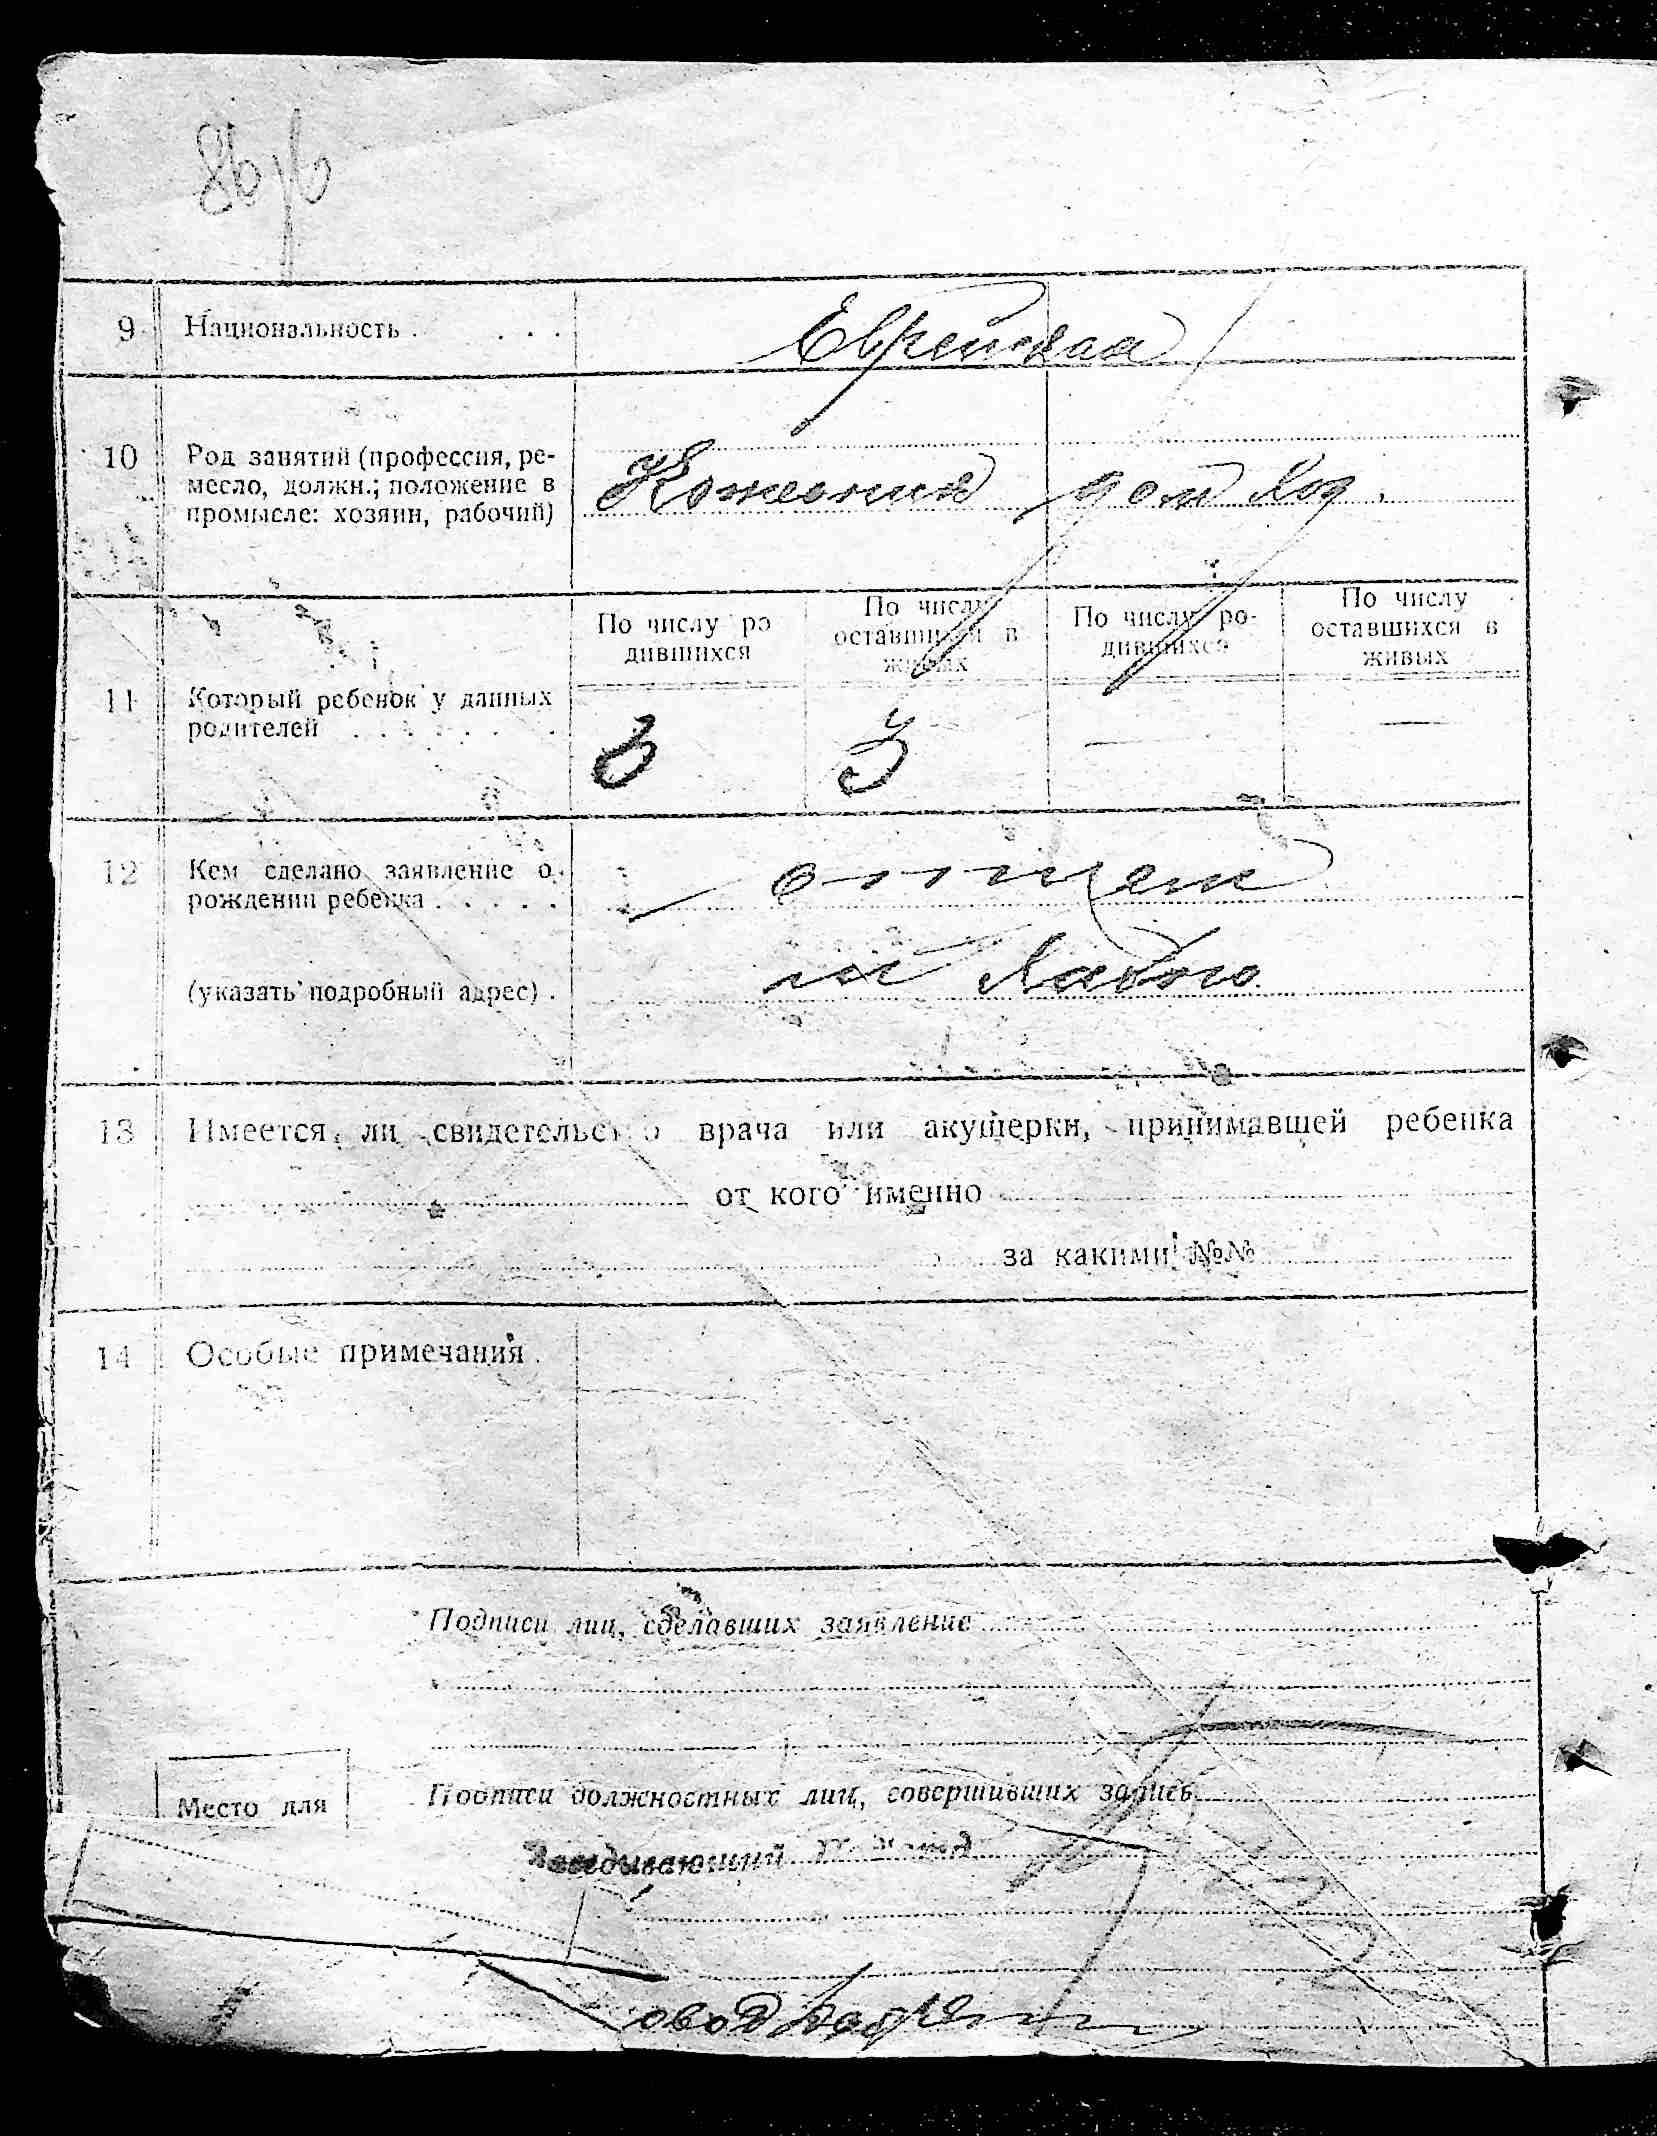 9 Национальность . . . .
Еврейская
10 Род занятий (профессия, ре-
месло, должн.; положение в
промысле: хозяин, рабочий)
дом хоз.
По числу ро
дившихся
По числу
оставшихся в
живых
По числу ро-
дившихся
По числу
оставшихся в
живых
11 Который ребенок у данных
родителей . . . . . .
3 3 — —
12 Кем сделано заявление о
рождении ребенка . . . . .
отцем
(указать подробный адрес) .
м
13 Имеется ли свидетельство врача или акушерки, принимавшей ребенка
от кого именно
за какими №№
14 Особые примечания .
Подписи лиц, сделавших заявление
Подписи должностных лиц, совершивших запись
Место для
Заведывающий